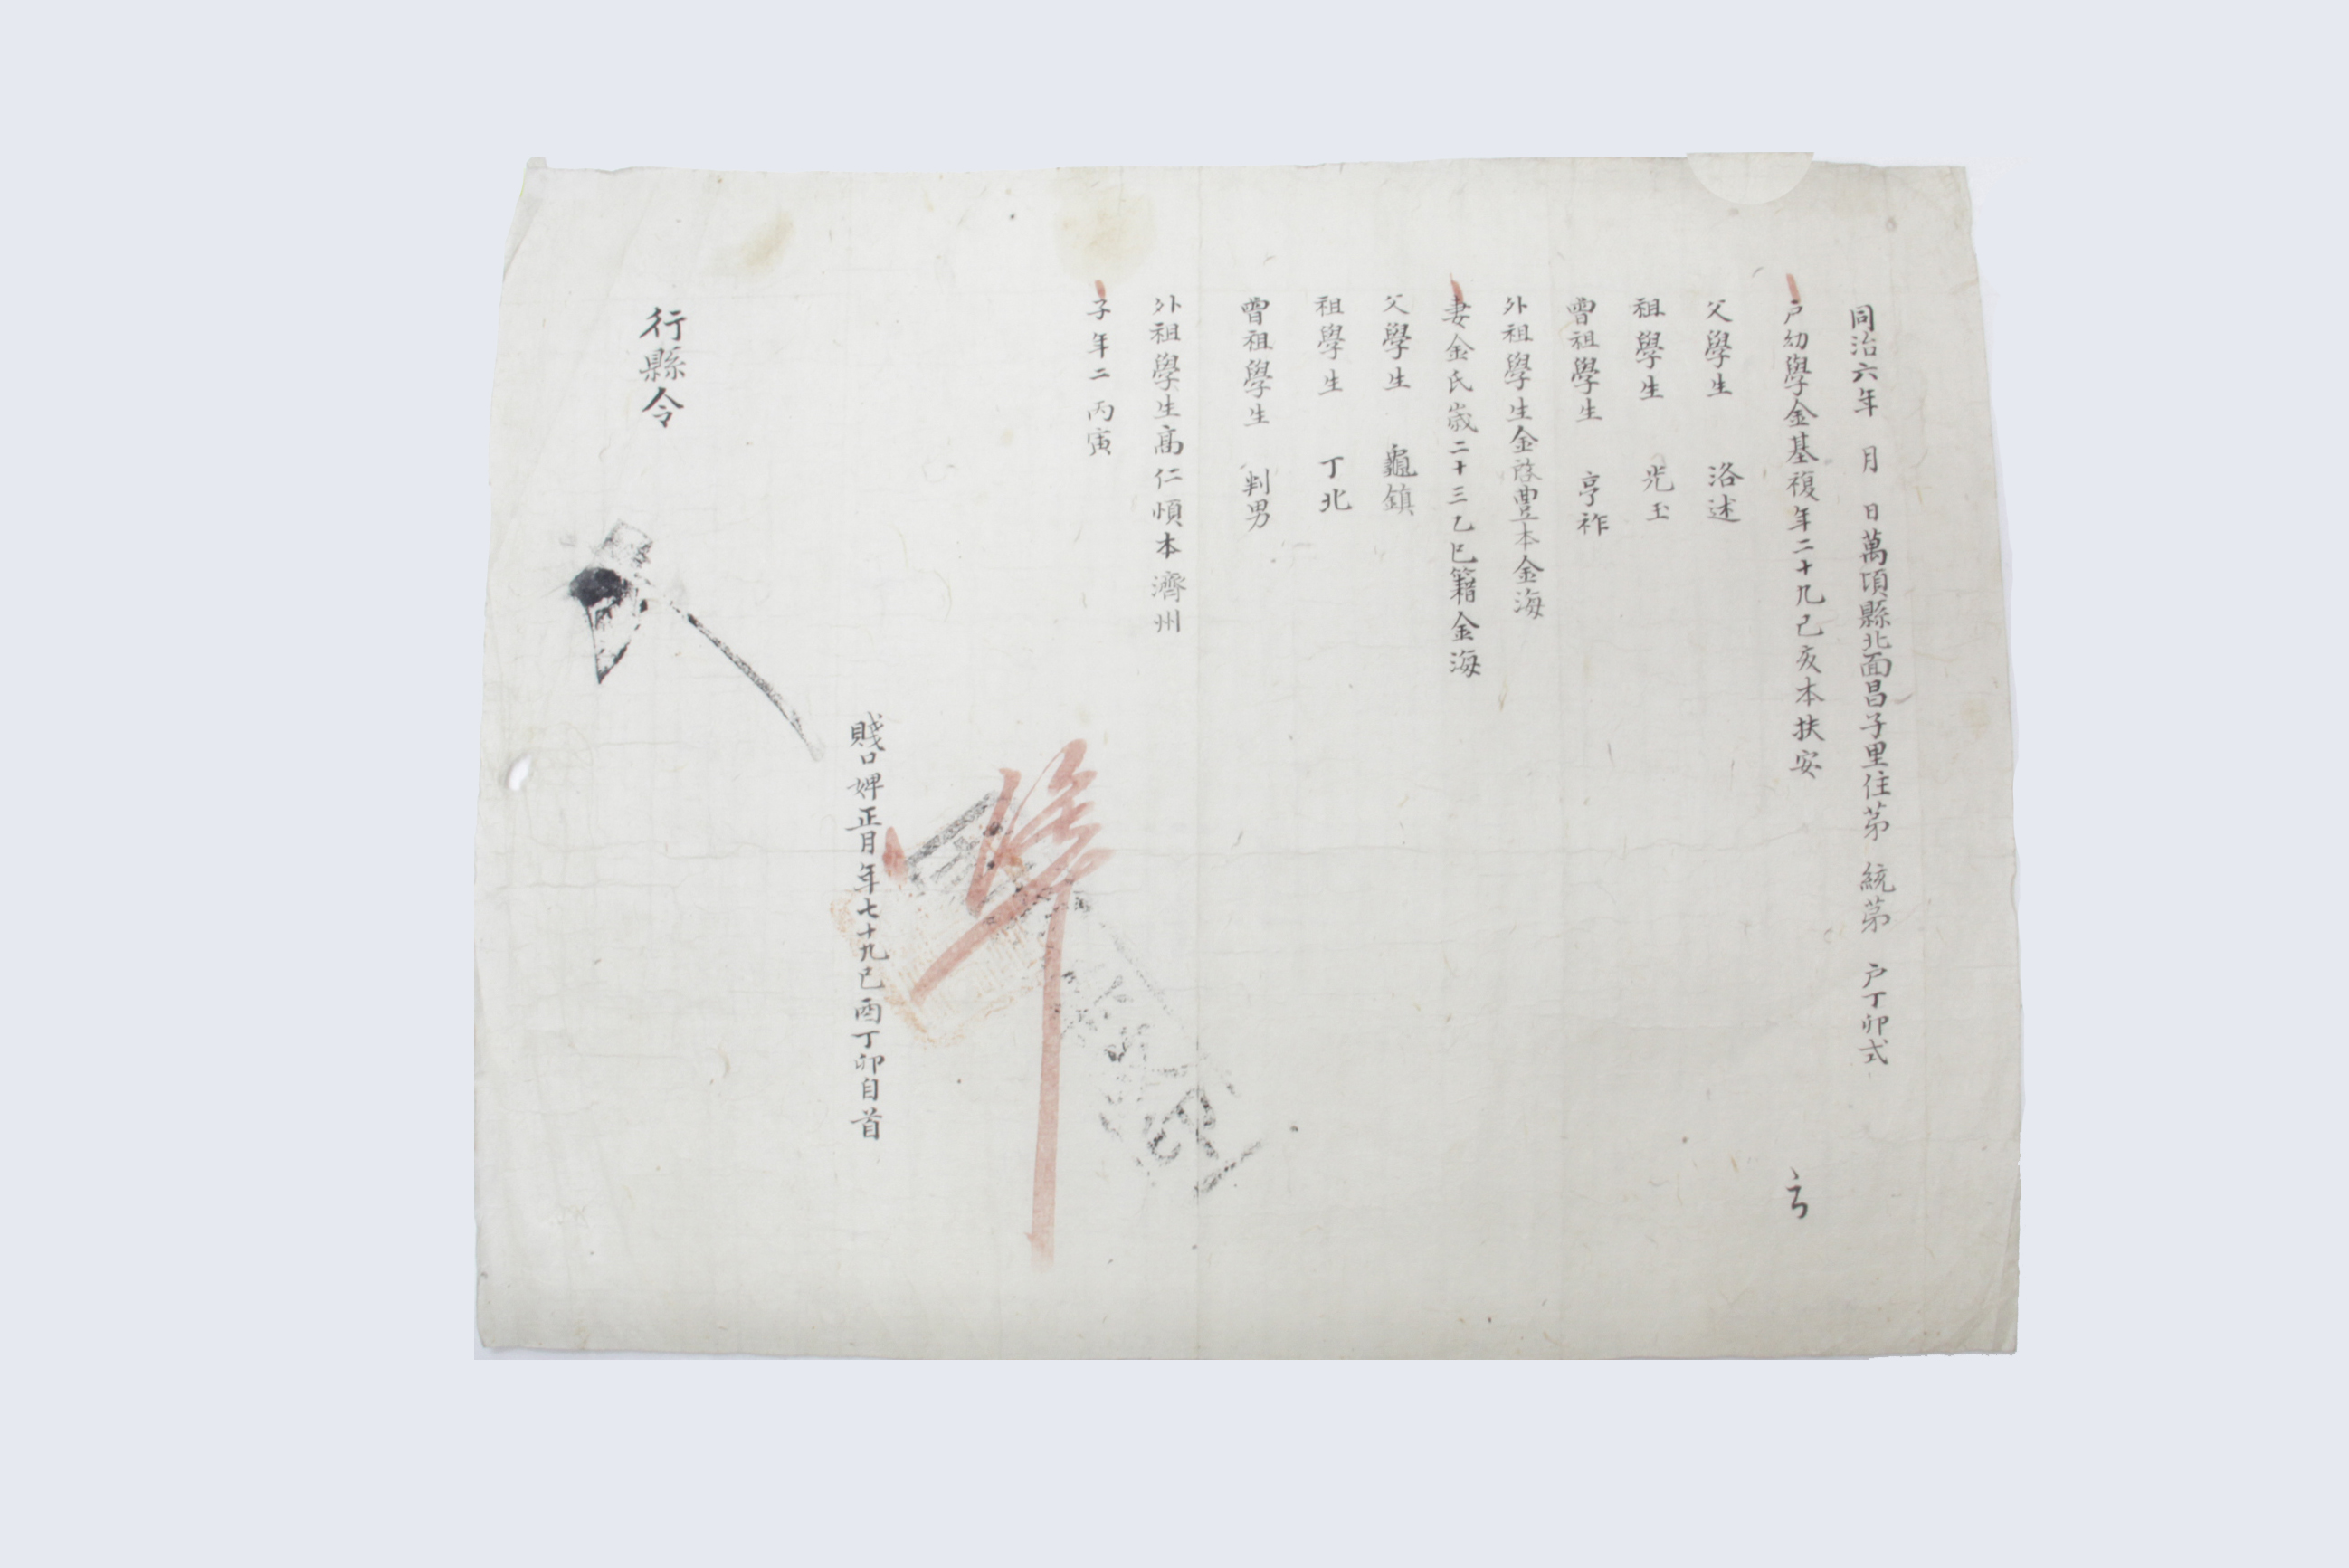 同治六年 月 日萬頃縣北面昌子里住苐 統苐 户丁卯式
户幼學金基複年二十九己亥本扶安
父學生 洛述
祖學生 光玉
曾祖學生 亨祚
外祖學生金啓豊本金海
妻金氏歲二十三乙巳籍金海
父學生 龜鎮
祖學生 丁北
曾祖學生 判男
外祖學生高仁愼本濟州
子年二丙寅
準
賤口婢正月年七十九己酉丁卯自首
行縣令